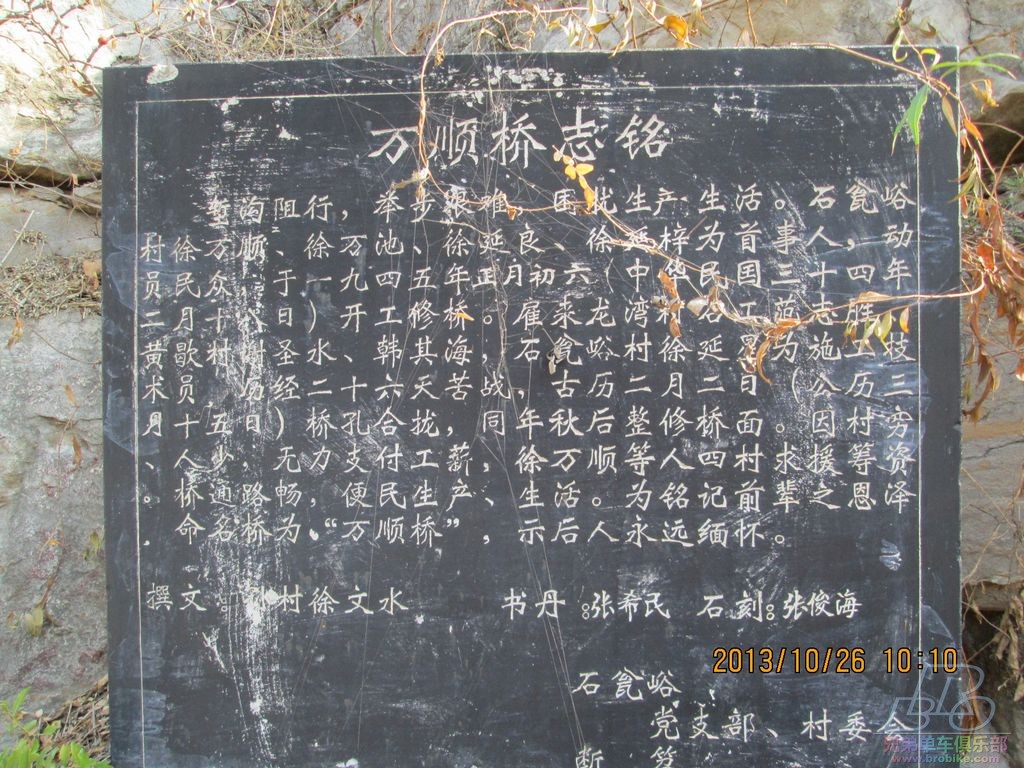 万顺桥志铭
沟阻行,举步艰难,困扰生产生活。石瓮峪
村徐万顺、徐万池、徐延良、徐延梓为首事人,动
员民众于一九四五年正月初六(中民国三十四年
二月十日)开工修桥。雇来龙湾村石工范志胜枝
黄歇村圣水、韩其海,石瓮峪村徐延恩为施工三
术员。历经二十六天苦战,古历二月二日(公历三
月十五日)桥孔合拢,同年秋后整修桥面。因村穷
、人少,无力支付工薪,徐万顺等人四村求援等资
。桥通路畅,便民生产、生活后。为铭记前辈之恩泽
命名桥为“万顺桥”,示后人永远缅怀。
撰文: 村徐文水 书丹:张希民 石刻:张俊海
石瓮峪
党支部、村委会
2013/10/26 10:10
BRO
兄弟单车俱乐部
www.brobike.com